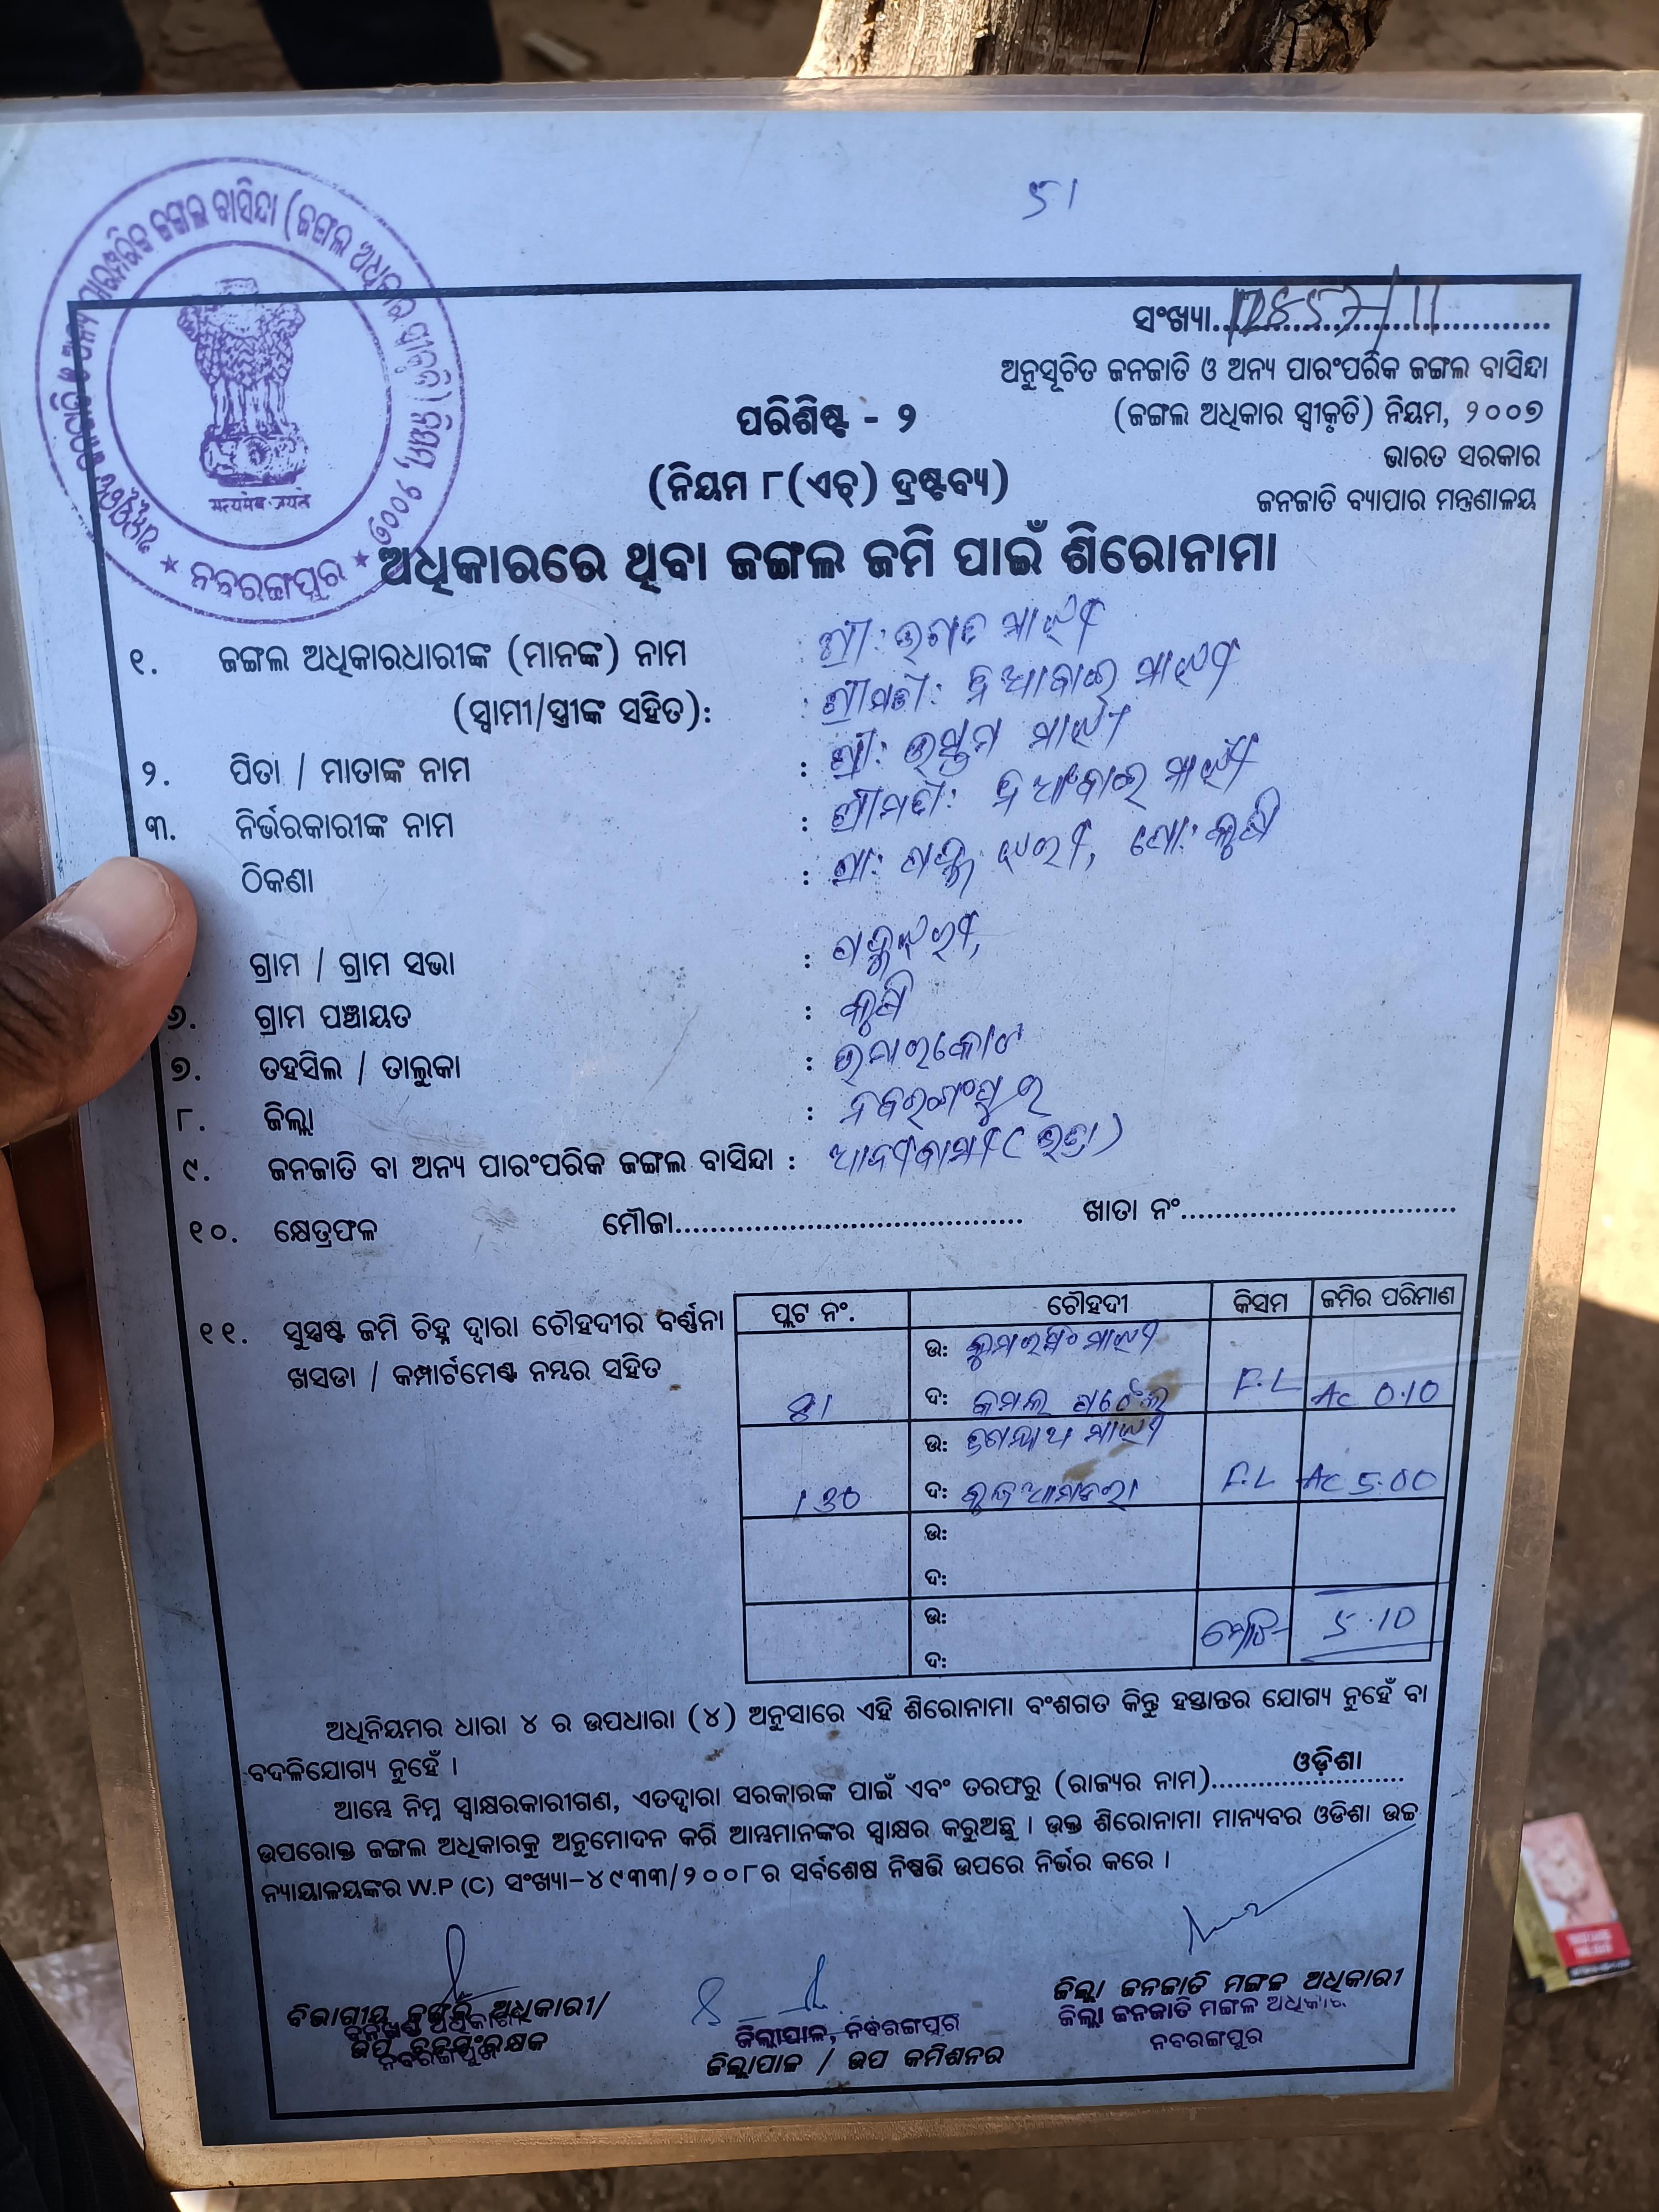 ୫୧
ସଂଖ୍ୟା
ଅନୁସୂଚିତ ଜନଜାତି ଓ ଅନ୍ୟ ପାରଂପରିକ ଜଙ୍ଗଲ ବାସିନ୍ଦା
(ଜଙ୍ଗଲ ଅଧିକାର ସ୍ୱୀକୃତି) ନିୟମ, ୨୦୦୭
ଭାରତ ସରକାର
ଜନଜାତି ବ୍ୟାପାର ମନ୍ତ୍ରଣାଳୟ
ପରିଶିଷ୍ଟ - ୨
(ନିୟମ ୮(ଏଚ୍) ଦ୍ରଷ୍ଟବ୍ୟ)
सत्यमेव जयते
ନବରଙ୍ଗପୁର
ଅଧିକାରରେ ଥିବା ଜଙ୍ଗଲ ଜମି ପାଇଁ ଶିରୋନାମା
୧. ଜଙ୍ଗଲ ଅଧିକାରଧାରୀଙ୍କ (ମାନଙ୍କ) ନାମ ଶ୍ରୀ: ମାଝୀ
(ସ୍ୱାମୀ/ସ୍ତ୍ରୀଙ୍କ ସହିତ): : ଶ୍ରୀମତୀ: ମାଝୀ
୨. ପିତା / ମାତାଙ୍କ ନାମ : ଶ୍ରୀ: ମାଝୀ
୩. ନିର୍ଭରକାରୀଙ୍କ ନାମ : ଶ୍ରୀମତୀ: ମାଝୀ
ଠିକଣା : ଗ୍ରା: ପୋ:
ଗ୍ରାମ / ଗ୍ରାମ ସଭା :
୬. ଗ୍ରାମ ପଞ୍ଚାୟତ :
୭. ତହସିଲ / ତାଲୁକା : ଉମରକୋଟ
୮. ଜିଲ୍ଲା : ନବରଙ୍ଗପୁର
୯. ଜନଜାତି ବା ଅନ୍ୟ ପାରଂପରିକ ଜଙ୍ଗଲ ବାସିନ୍ଦା : ଆଦୀବାସୀ
୧୦. କ୍ଷେତ୍ରଫଳ ମୌଜା ଖାତା ନଂ
୧୧. ସୁସ୍ପଷ୍ଟ ଜମି ଚିହ୍ନ ଦ୍ୱାରା ଚୌହଦୀର ବର୍ଣ୍ଣନା
ଖସଡା / କମ୍ପାର୍ଟମେଣ୍ଟ ନମ୍ବର ସହିତ
ପ୍ଲଟ ନଂ. ଚୌହଦୀ କିସମ ଜମିର ପରିମାଣ
ଉ: ମାଝୀ
ଦ: କମଲ F.L Ac 0.10
ଉ: ଜଗନ୍ନାଥ ମାଝୀ
୧୩୦ ଦ: F.L Ac 5.00
ଉ:
ଦ:
ଉ: ମୋଟ 5.10
ଦ:
ଅଧିନିୟମର ଧାରା ୪ ର ଉପଧାରା (୪) ଅନୁସାରେ ଏହି ଶିରୋନାମା ବଂଶଗତ କିନ୍ତୁ ହସ୍ତାନ୍ତର ଯୋଗ୍ୟ ନୁହେଁ ବା
ବଦଳିଯୋଗ୍ୟ ନୁହେଁ ।
ଆମ୍ଭେ ନିମ୍ନ ସ୍ୱାକ୍ଷରକାରୀଗଣ, ଏତଦ୍ଦ୍ୱାରା ସରକାରଙ୍କ ପାଇଁ ଏବଂ ତରଫରୁ (ରାଜ୍ୟର ନାମ) ଓଡ଼ିଶା
ଉପରୋକ୍ତ ଜଙ୍ଗଲ ଅଧିକାରକୁ ଅନୁମୋଦନ କରି ଆମ୍ଭମାନଙ୍କର ସ୍ୱାକ୍ଷର କରୁଅଛୁ । ଉକ୍ତ ଶିରୋନାମା ମାନ୍ୟବର ଓଡିଶା ଉଚ୍ଚ
ନ୍ୟାୟାଳୟଙ୍କର W.P (C) ସଂଖ୍ୟା-୪୯୩୩/୨୦୦୮ର ସର୍ବଶେଷ ନିଷ୍ପତ୍ତି ଉପରେ ନିର୍ଭର କରେ ।
ଜିଲ୍ଲା ଜନଜାତି ମଙ୍ଗଳ ଅଧିକାରୀ
ଜିଲ୍ଲା ଜନଜାତି ମଙ୍ଗଳ ଅଧିକାରୀ
ନବରଙ୍ଗପୁର
ଜିଲ୍ଲାପାଳ, ନବରଙ୍ଗପୁର
ଜିଲ୍ଲାପାଳ / ଉପ କମିଶନର
ବିଭାଗୀୟ ଜଙ୍ଗଲ ଅଧିକାରୀ/
ନବରଙ୍ଗପୁର